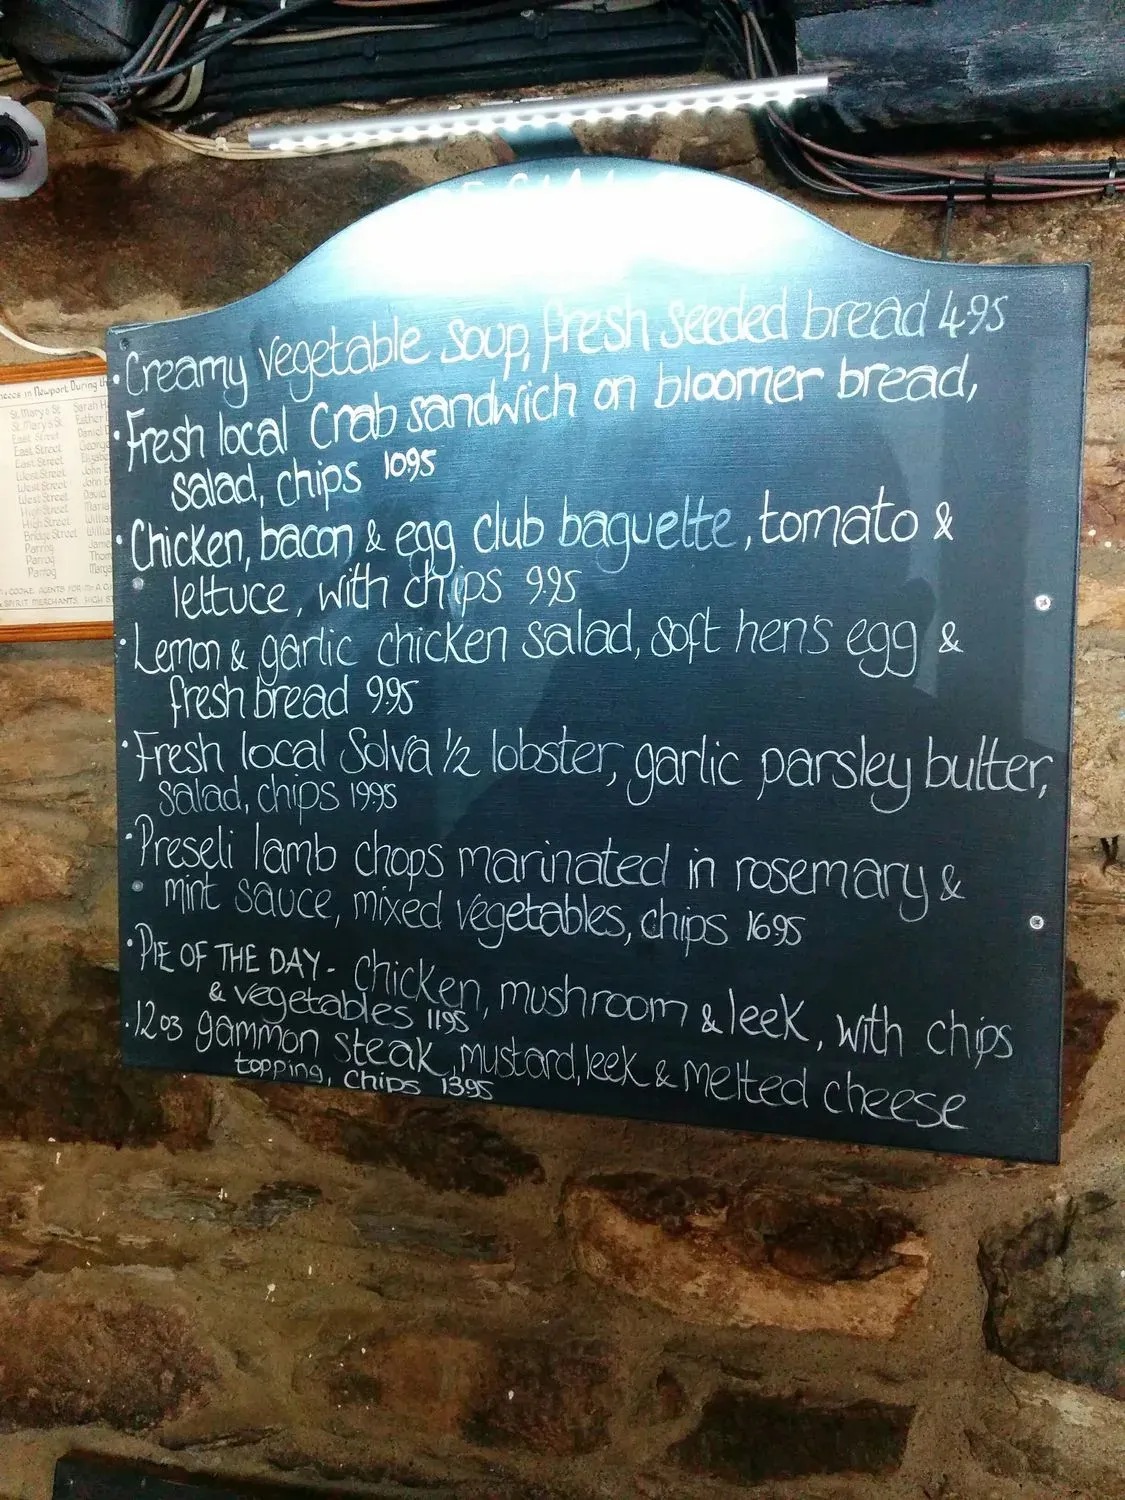 Creamy vegetable soup, fresh seeded bread 4.95
Fresh local Crab sandwich on bloomer bread,
salad, chips 10.95
Chicken, bacon & egg club baguette, tomato &
lettuce, with chips 9.95
Lemon & garlic chicken salad, soft hen's egg &
fresh bread 9.95
Fresh local Solva 1/2 lobster, garlic parsley butter,
salad, chips 19.95
Preseli lamb chops marinated in rosemary &
mint sauce, mixed vegetables, chips 16.95
PIE OF THE DAY - Chicken, mushroom & leek, with chips
& vegetables 11.95
12oz gammon steak, mustard, leek & melted cheese
topping, chips 13.95
in Newport During th
St. Mary's St Sarah
St. Mary's St Esther
East Street Daniel
East Street George
East Street
West Street John
West Street John
West Street David
High Street Maria
High Street William
Bridge Street William
Parrog James
Parrog Thom
Parrog Marga
COOKE AGENTS FOR
SPIRIT MERCHANTS, HIGH